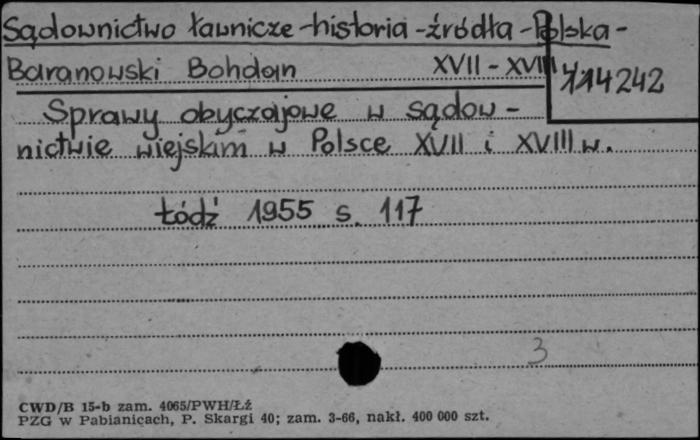 Sądownictwo ławnicze-historia-źródła-Polska-
Baranowski Bohdan XVII-XVIII
114242
Sprawy obyczajowe w sądow-
nictwie wiejskim w Polsce XVII i XVIII w.
Łódź 1955 s. 117
3
CWD/B 15-b zam. 4065/PWH/Łź
PZG w Pabianicach, P. Skargi 40; zam. 3-66, nakł. 400 000 szt.